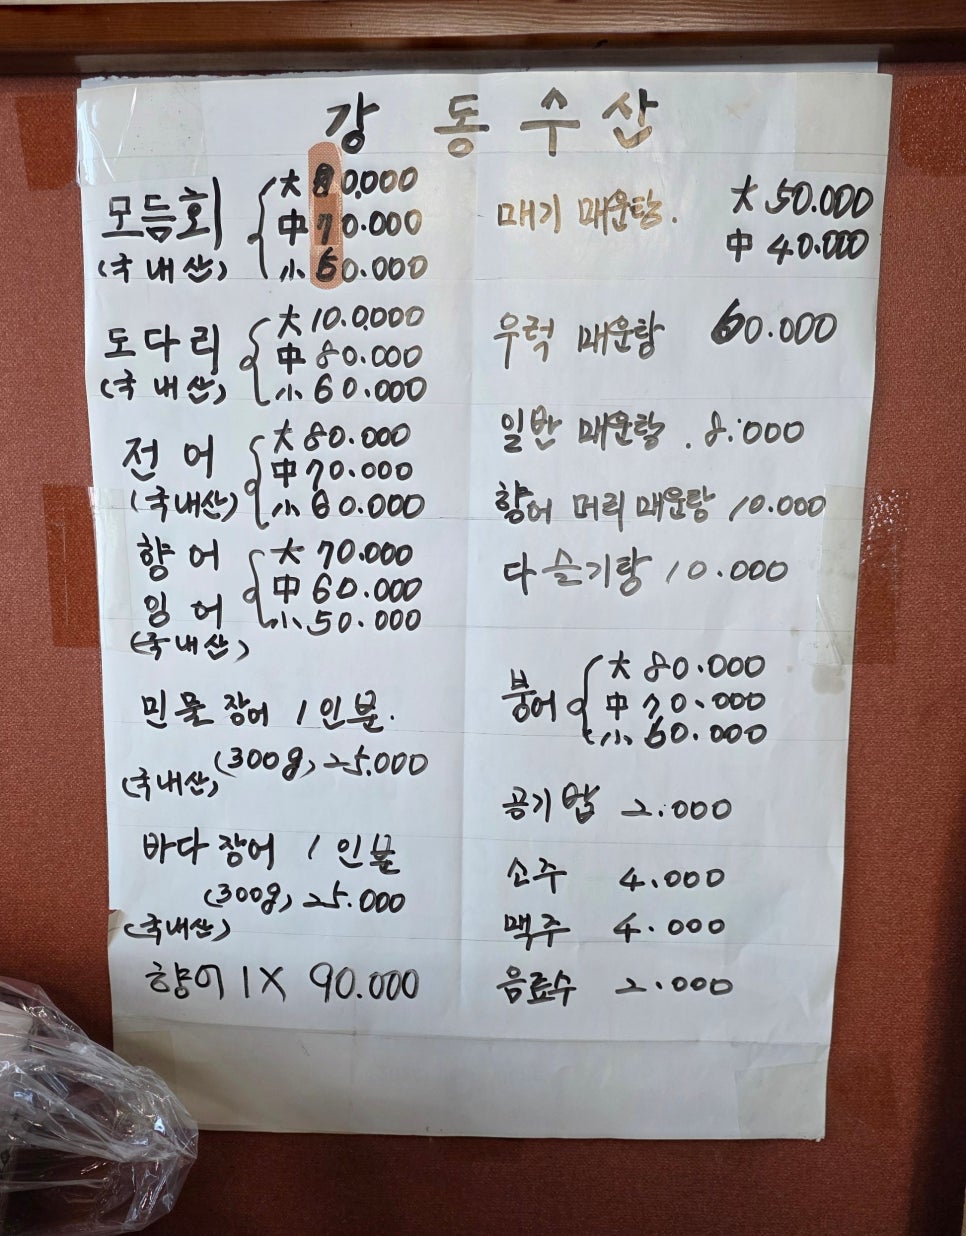 강 동 수 산
모듬회 大 80,000
中 70.000
(국내산) 小 60.000
도다리 大 10.0,000
中 80.000
(국내산) 小 60.000
전어 大 80.000
中 70.000
(국내산) 小 60.000
향어 大 70.000
中 60.000
잉어 小 50.000
(국내산)
민물장어 1인분.
(300g) 25.000
(국내산)
바다장어 1인분
(300g) 25.000
(국내산)
향어 1X 90.000
매기 매운탕. 大 50.000
中 40.000
우럭 매운탕 60.000
일반 매운탕 . 8.000
향어 머리 매운탕 10.000
다슬기탕 10.000
붕어 大 80.000
中 70.000
小 60.000
공기밥 2.000
소주 4.000
맥주 4.000
음료수 2.000